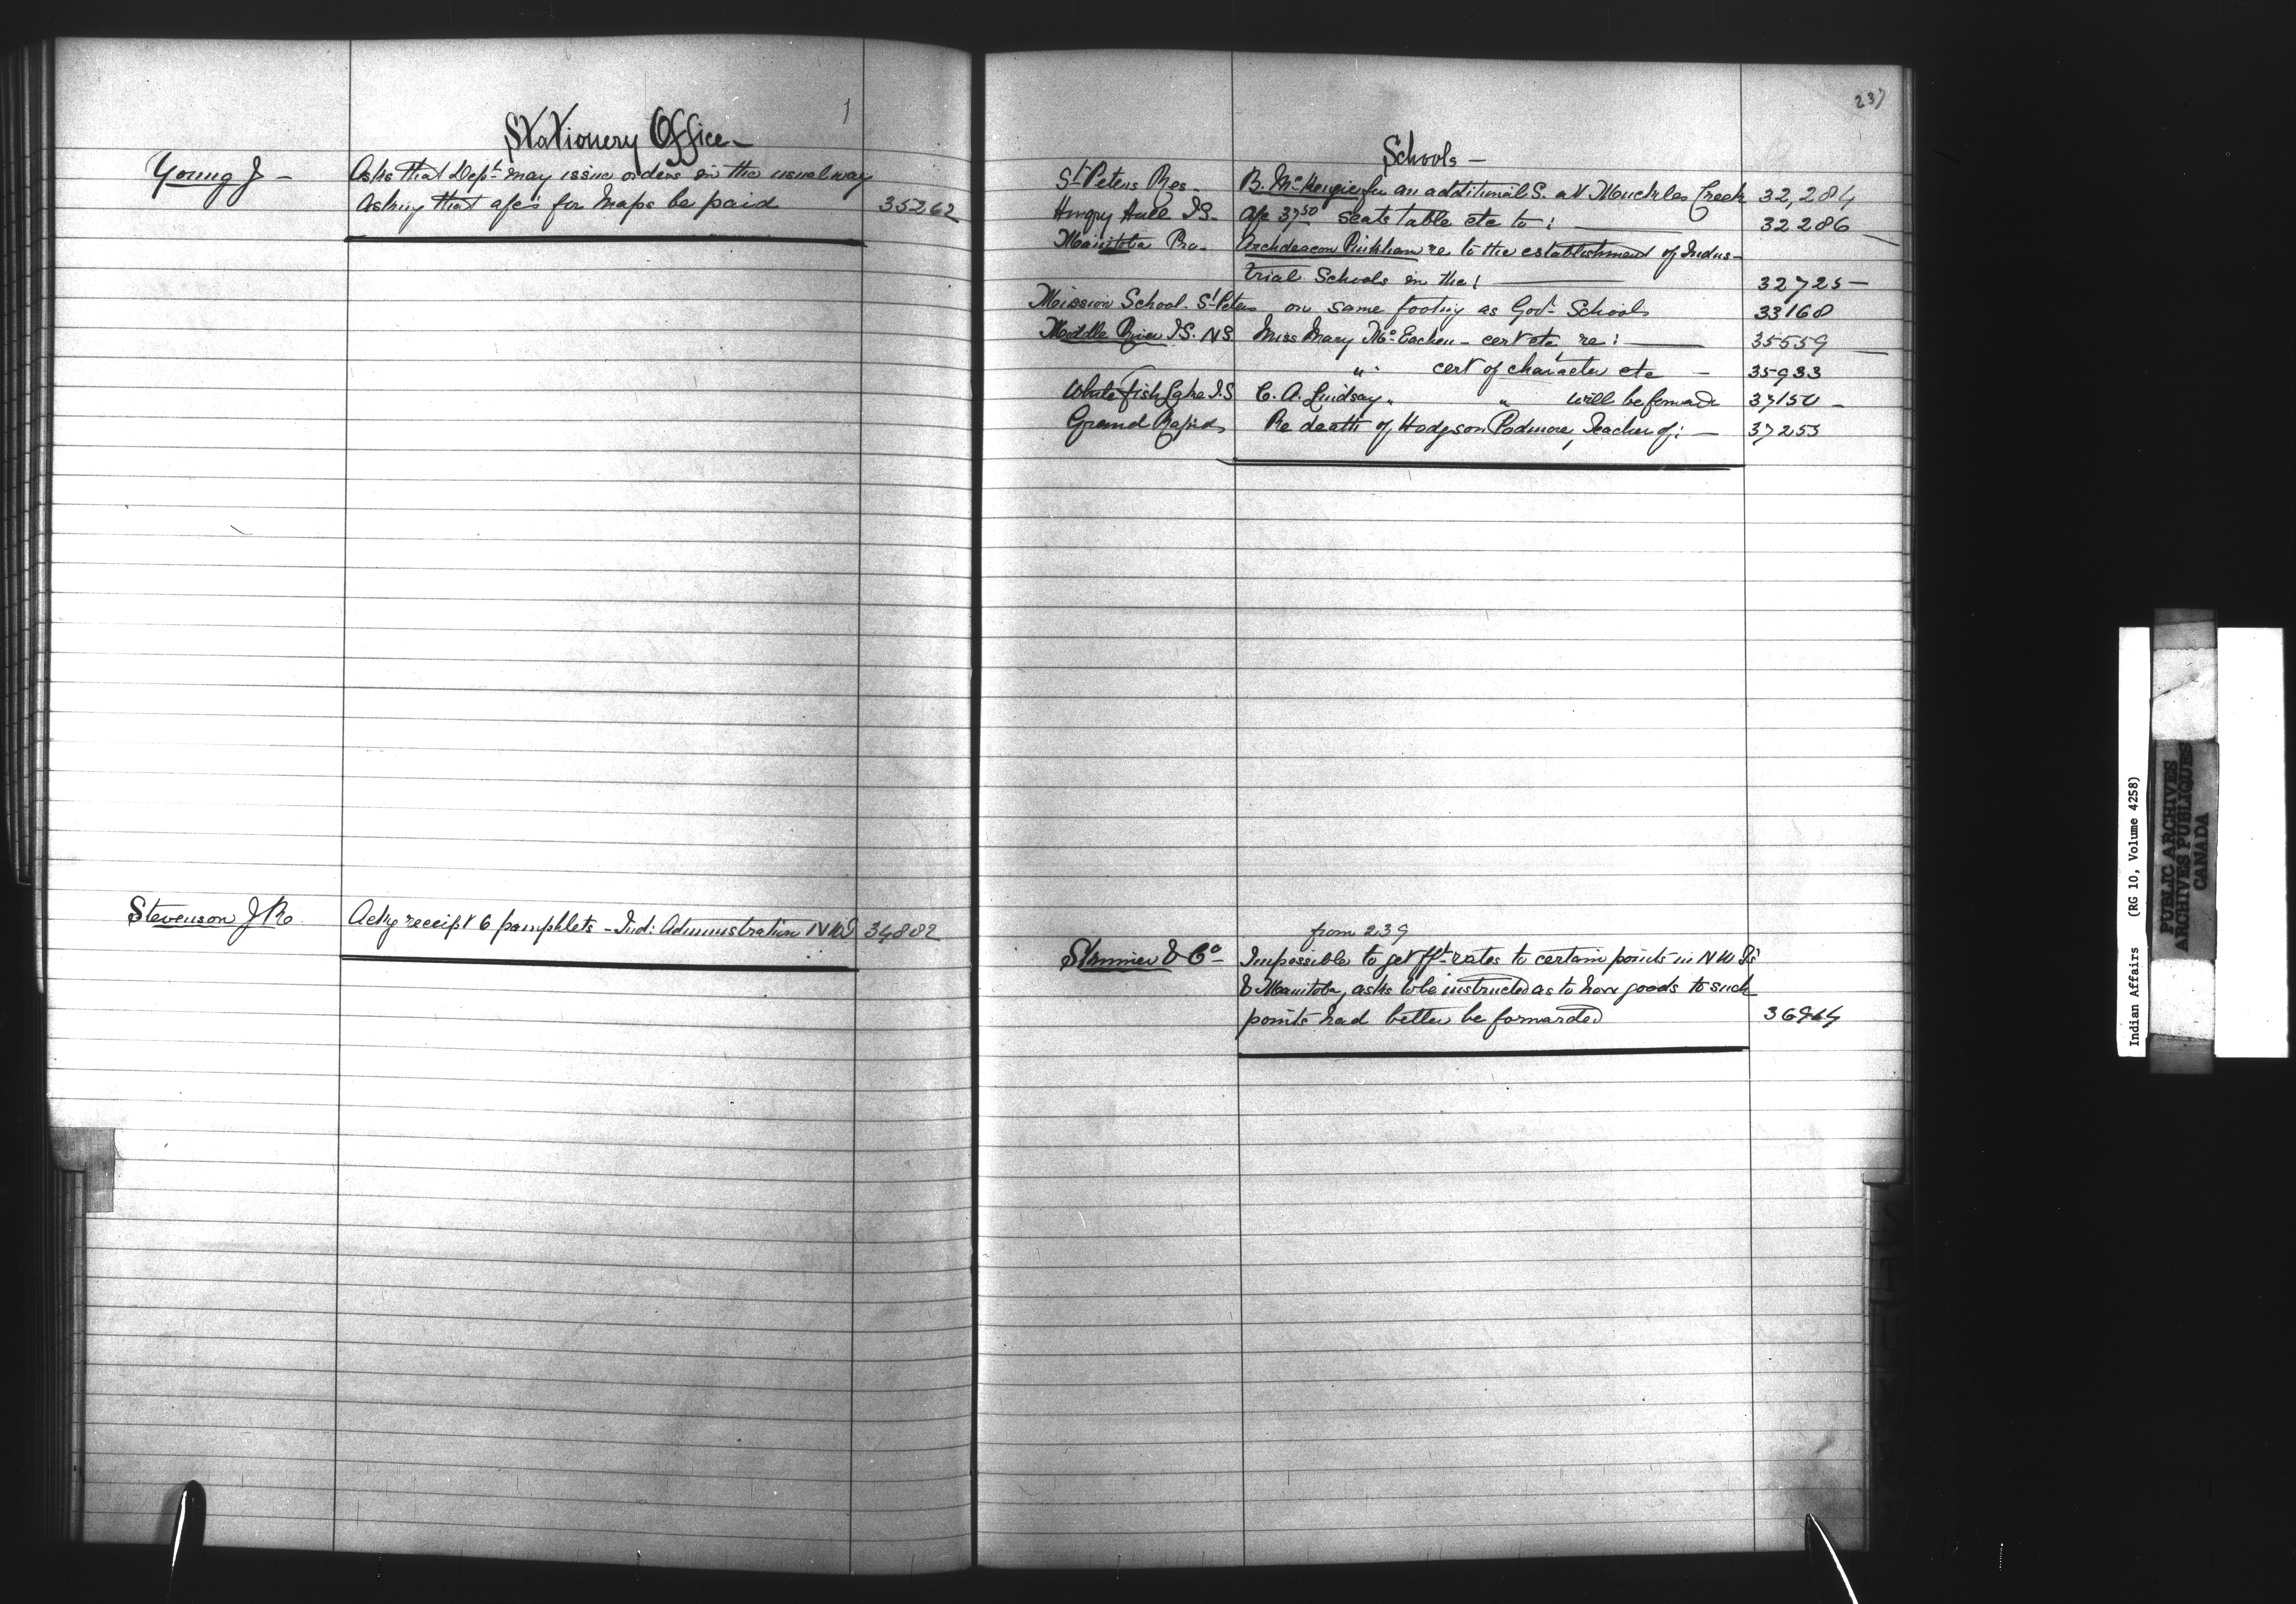 Stationery Office -
Young J - Asks that Dept. may issue orders in the usual way
asking that a/cs for Maps be paid 35262
Stevenson J R. Ackg receipt 6 pamphlets - Ind: Administration NWT 34882
237
Schools -
St Peters Res - B. McKenzie for an additional S. at Muckles Creek 32,284
Hungry Hall I.S. - a/c 37 50 seats table etc to : 32286
Manitoba Pro - Archdeacon Pinkham re to the establishment of Indus-
trial Schools in the ! 32725 -
Mission School - St Peters on same footing as Govt Schools 33168
Middle River I.S. N.S Miss Mary McEachen - cert etc re : 35559
" cert of character etc - 35933
White fish Lake I.S C. A. Lindsay " " will be forward 37150 -
Grand Rapids Re death of Hodgson Podmore, Teacher of : - 37253
from 239
& Co Impossible to get fft rates to certain points in NW Ts
& Manitoba, asks to be instructed as to how goods to such
points had better be forwarded
Indian Affairs (RG 10, Volume 4258)
PUBLIC ARCHIVES
ARCHIVES PUBLIQUES
CANADA